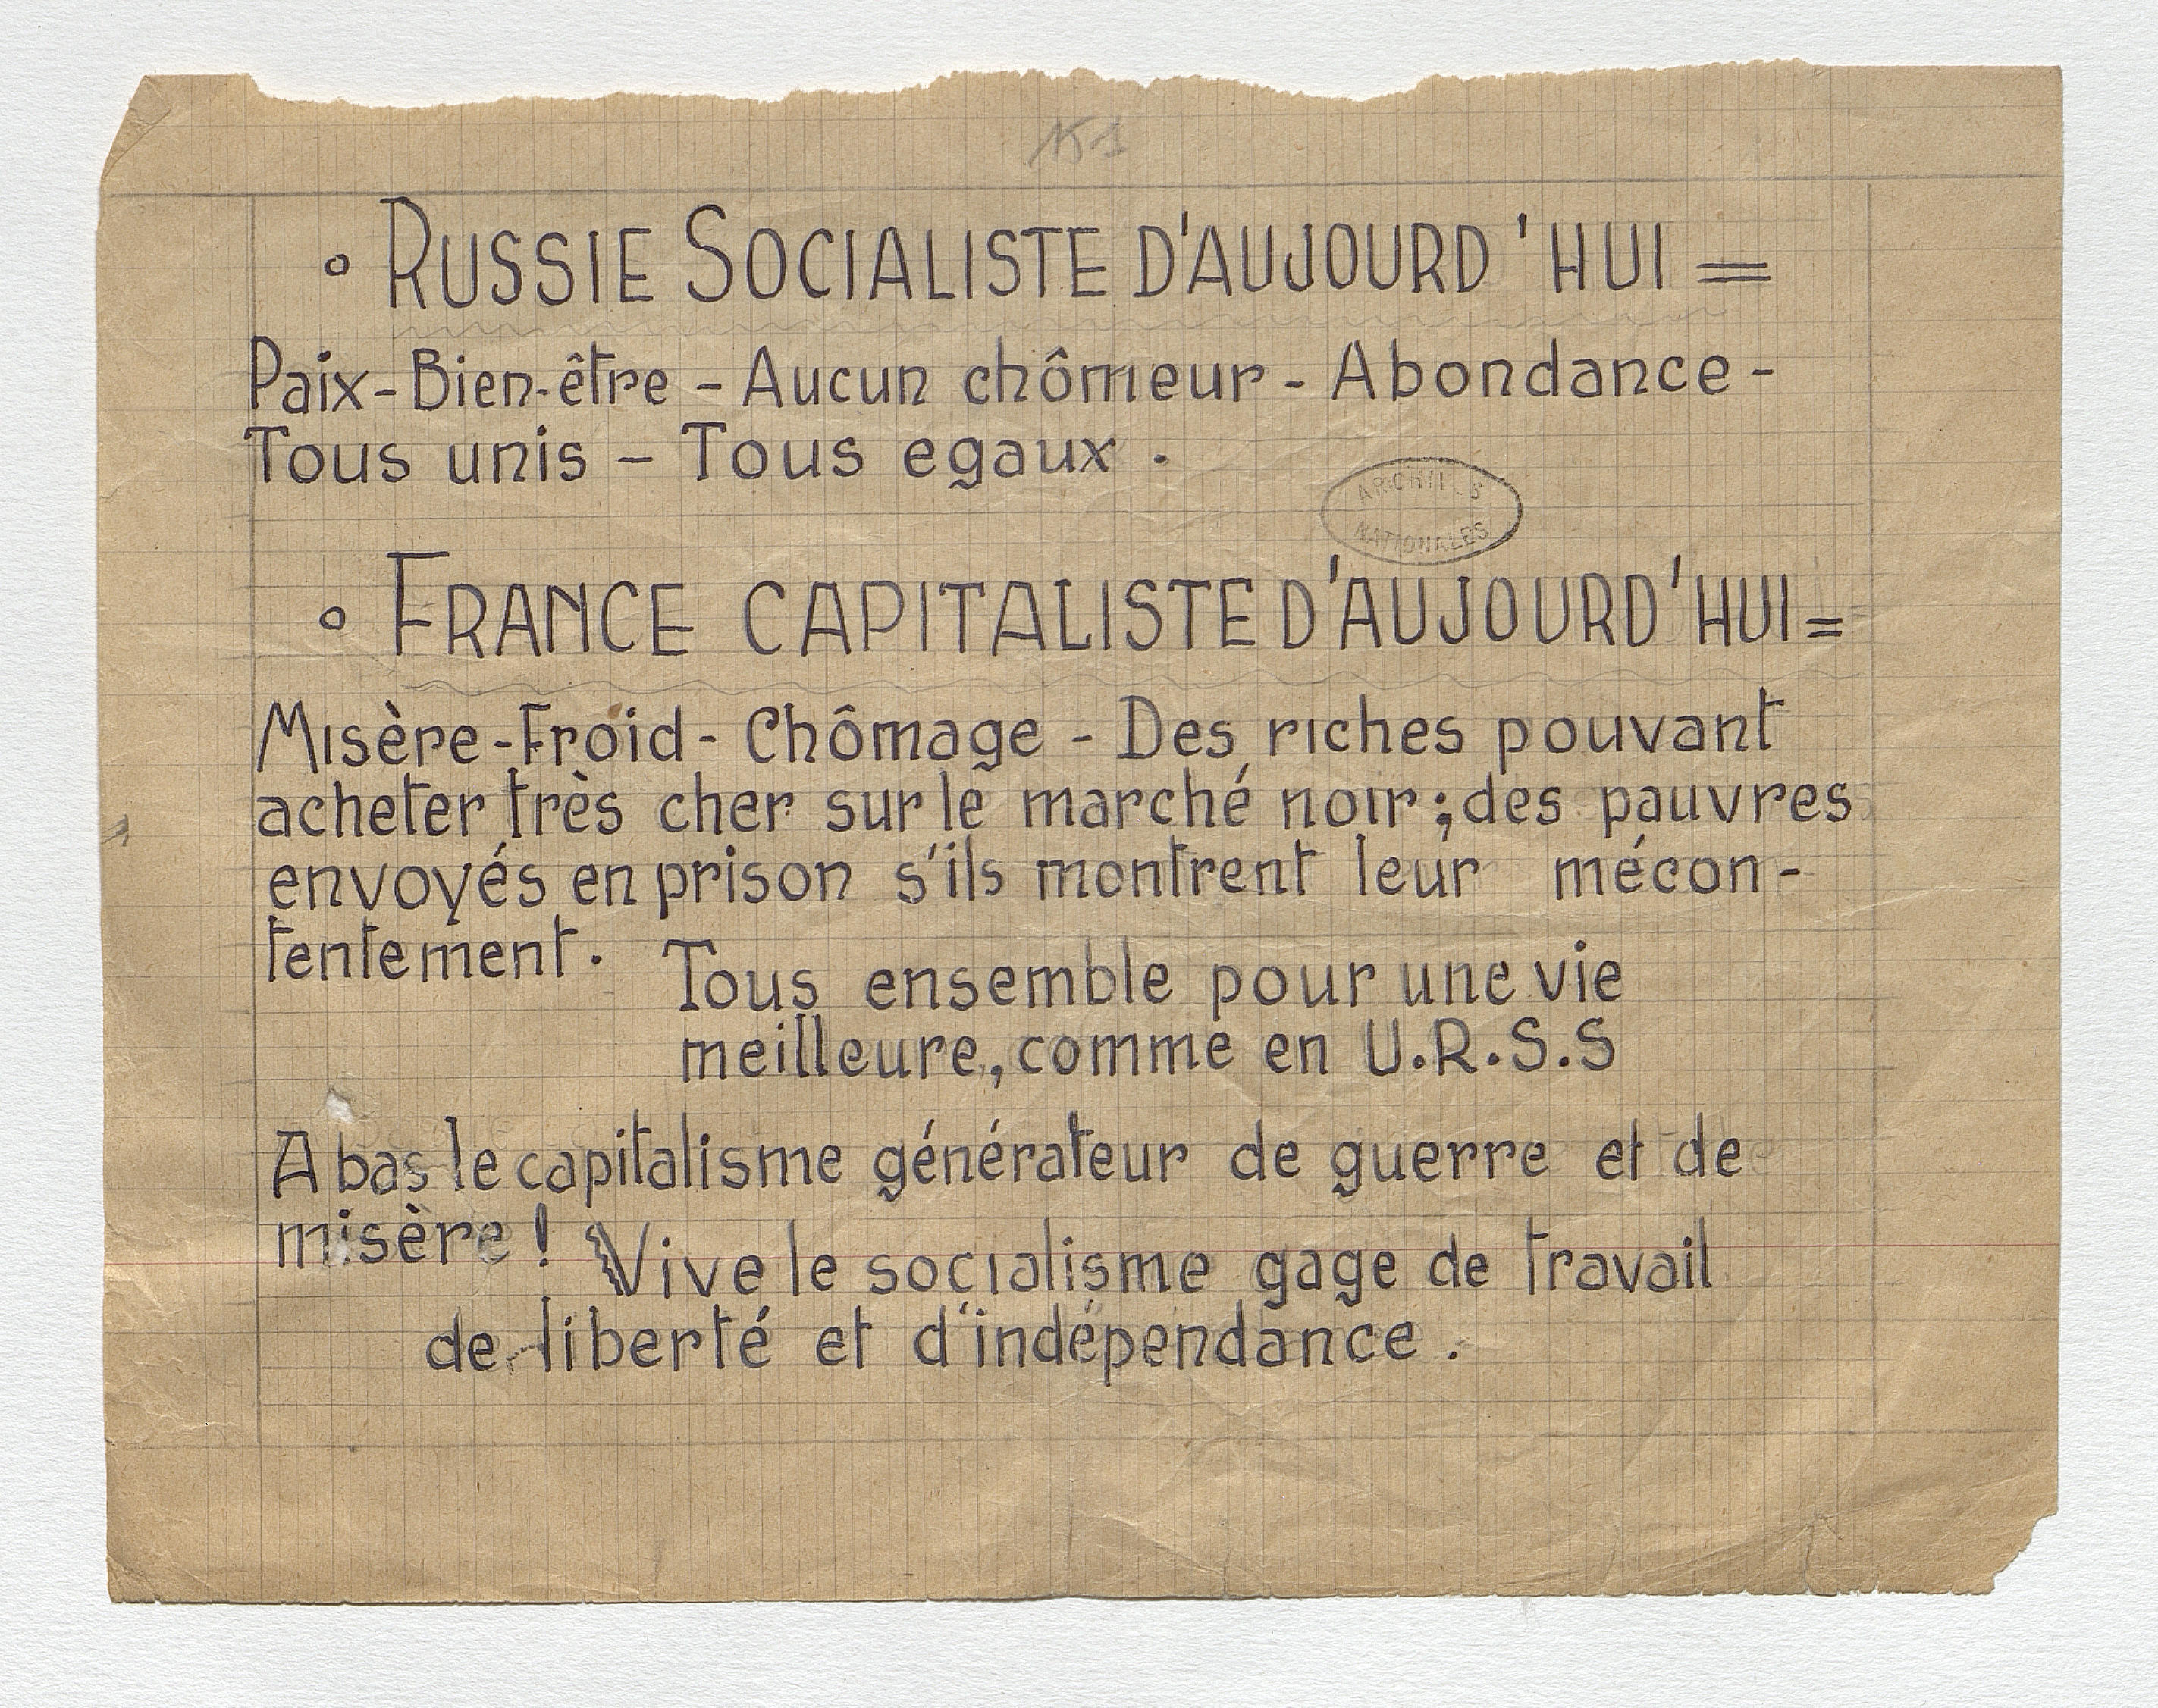 151
° RUSSIE SOCIALISTE D'AUJOURD'HUI =
Paix - Bien-être - Aucun chômeur - Abondance -
Tous unis - Tous egaux .
ARCHIVES
NATIONALES
° FRANCE CAPITALISTE D'AUJOURD'HUI =
Misère - Froid - Chômage - Des riches pouvant
acheter très cher sur le marché noir ; des pauvres
envoyés en prison s'ils montrent leur mécon-
tentement .
Tous ensemble pour une vie
meilleure, comme en U.R.S.S
A bas le capitalisme générateur de guerre et de
misère !
Vive le socialisme gage de travail
de liberté et d'indépendance .